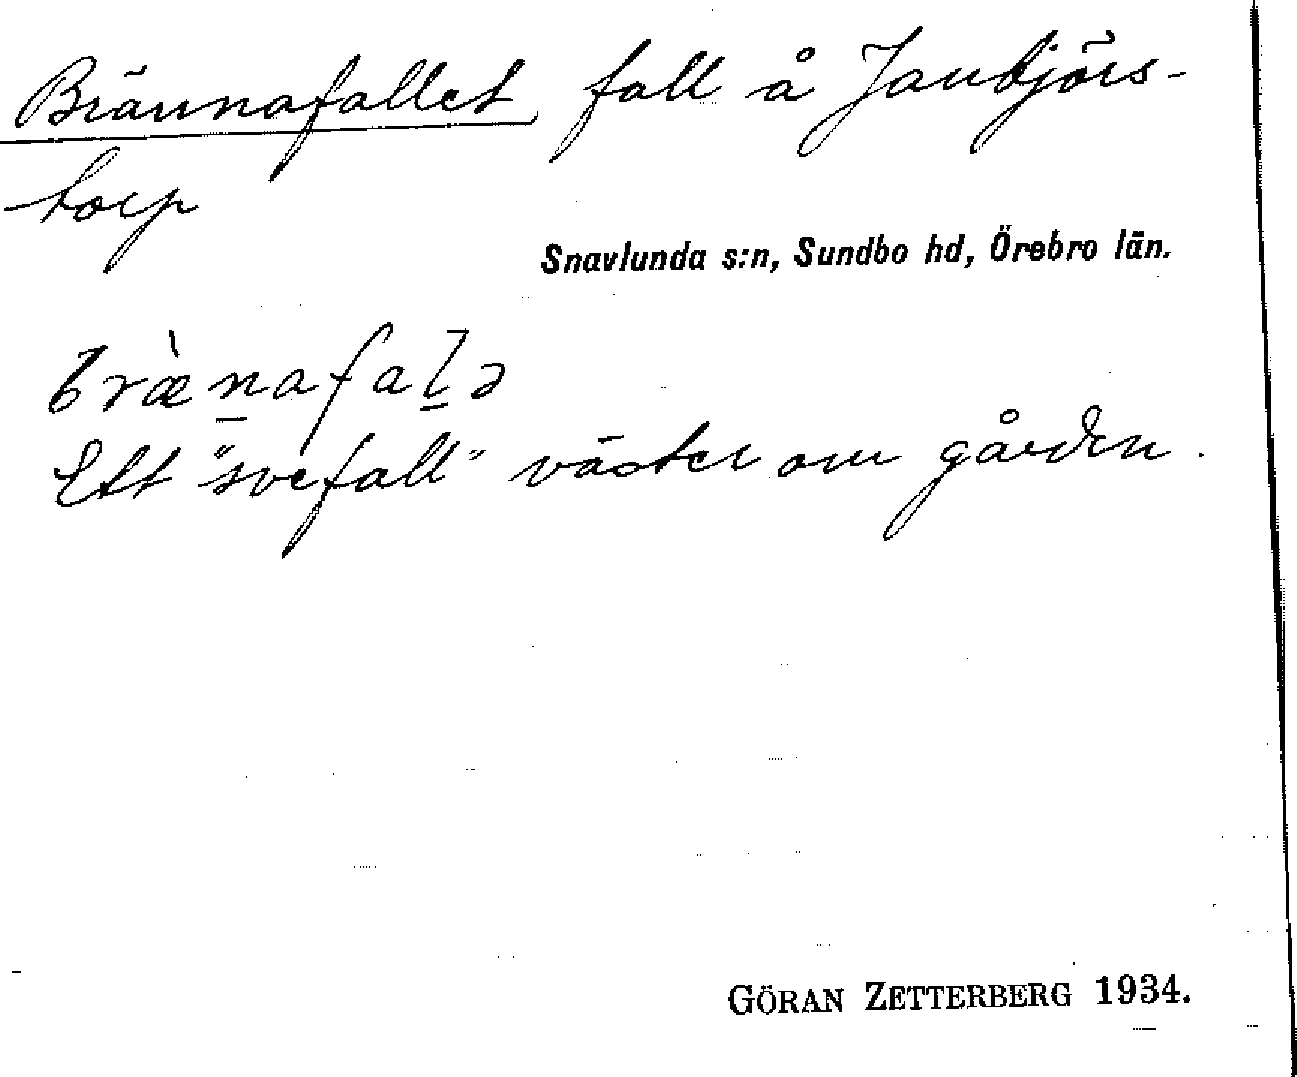 Brännafallet, fall å Janbjörs-
torp
Snavlunda s:n, Sundbo hd, Örebro län.
bræ̀n̲afal̲ə
Ett "svefall" väster om gården.
GÖRAN ZETTERBERG 1934.